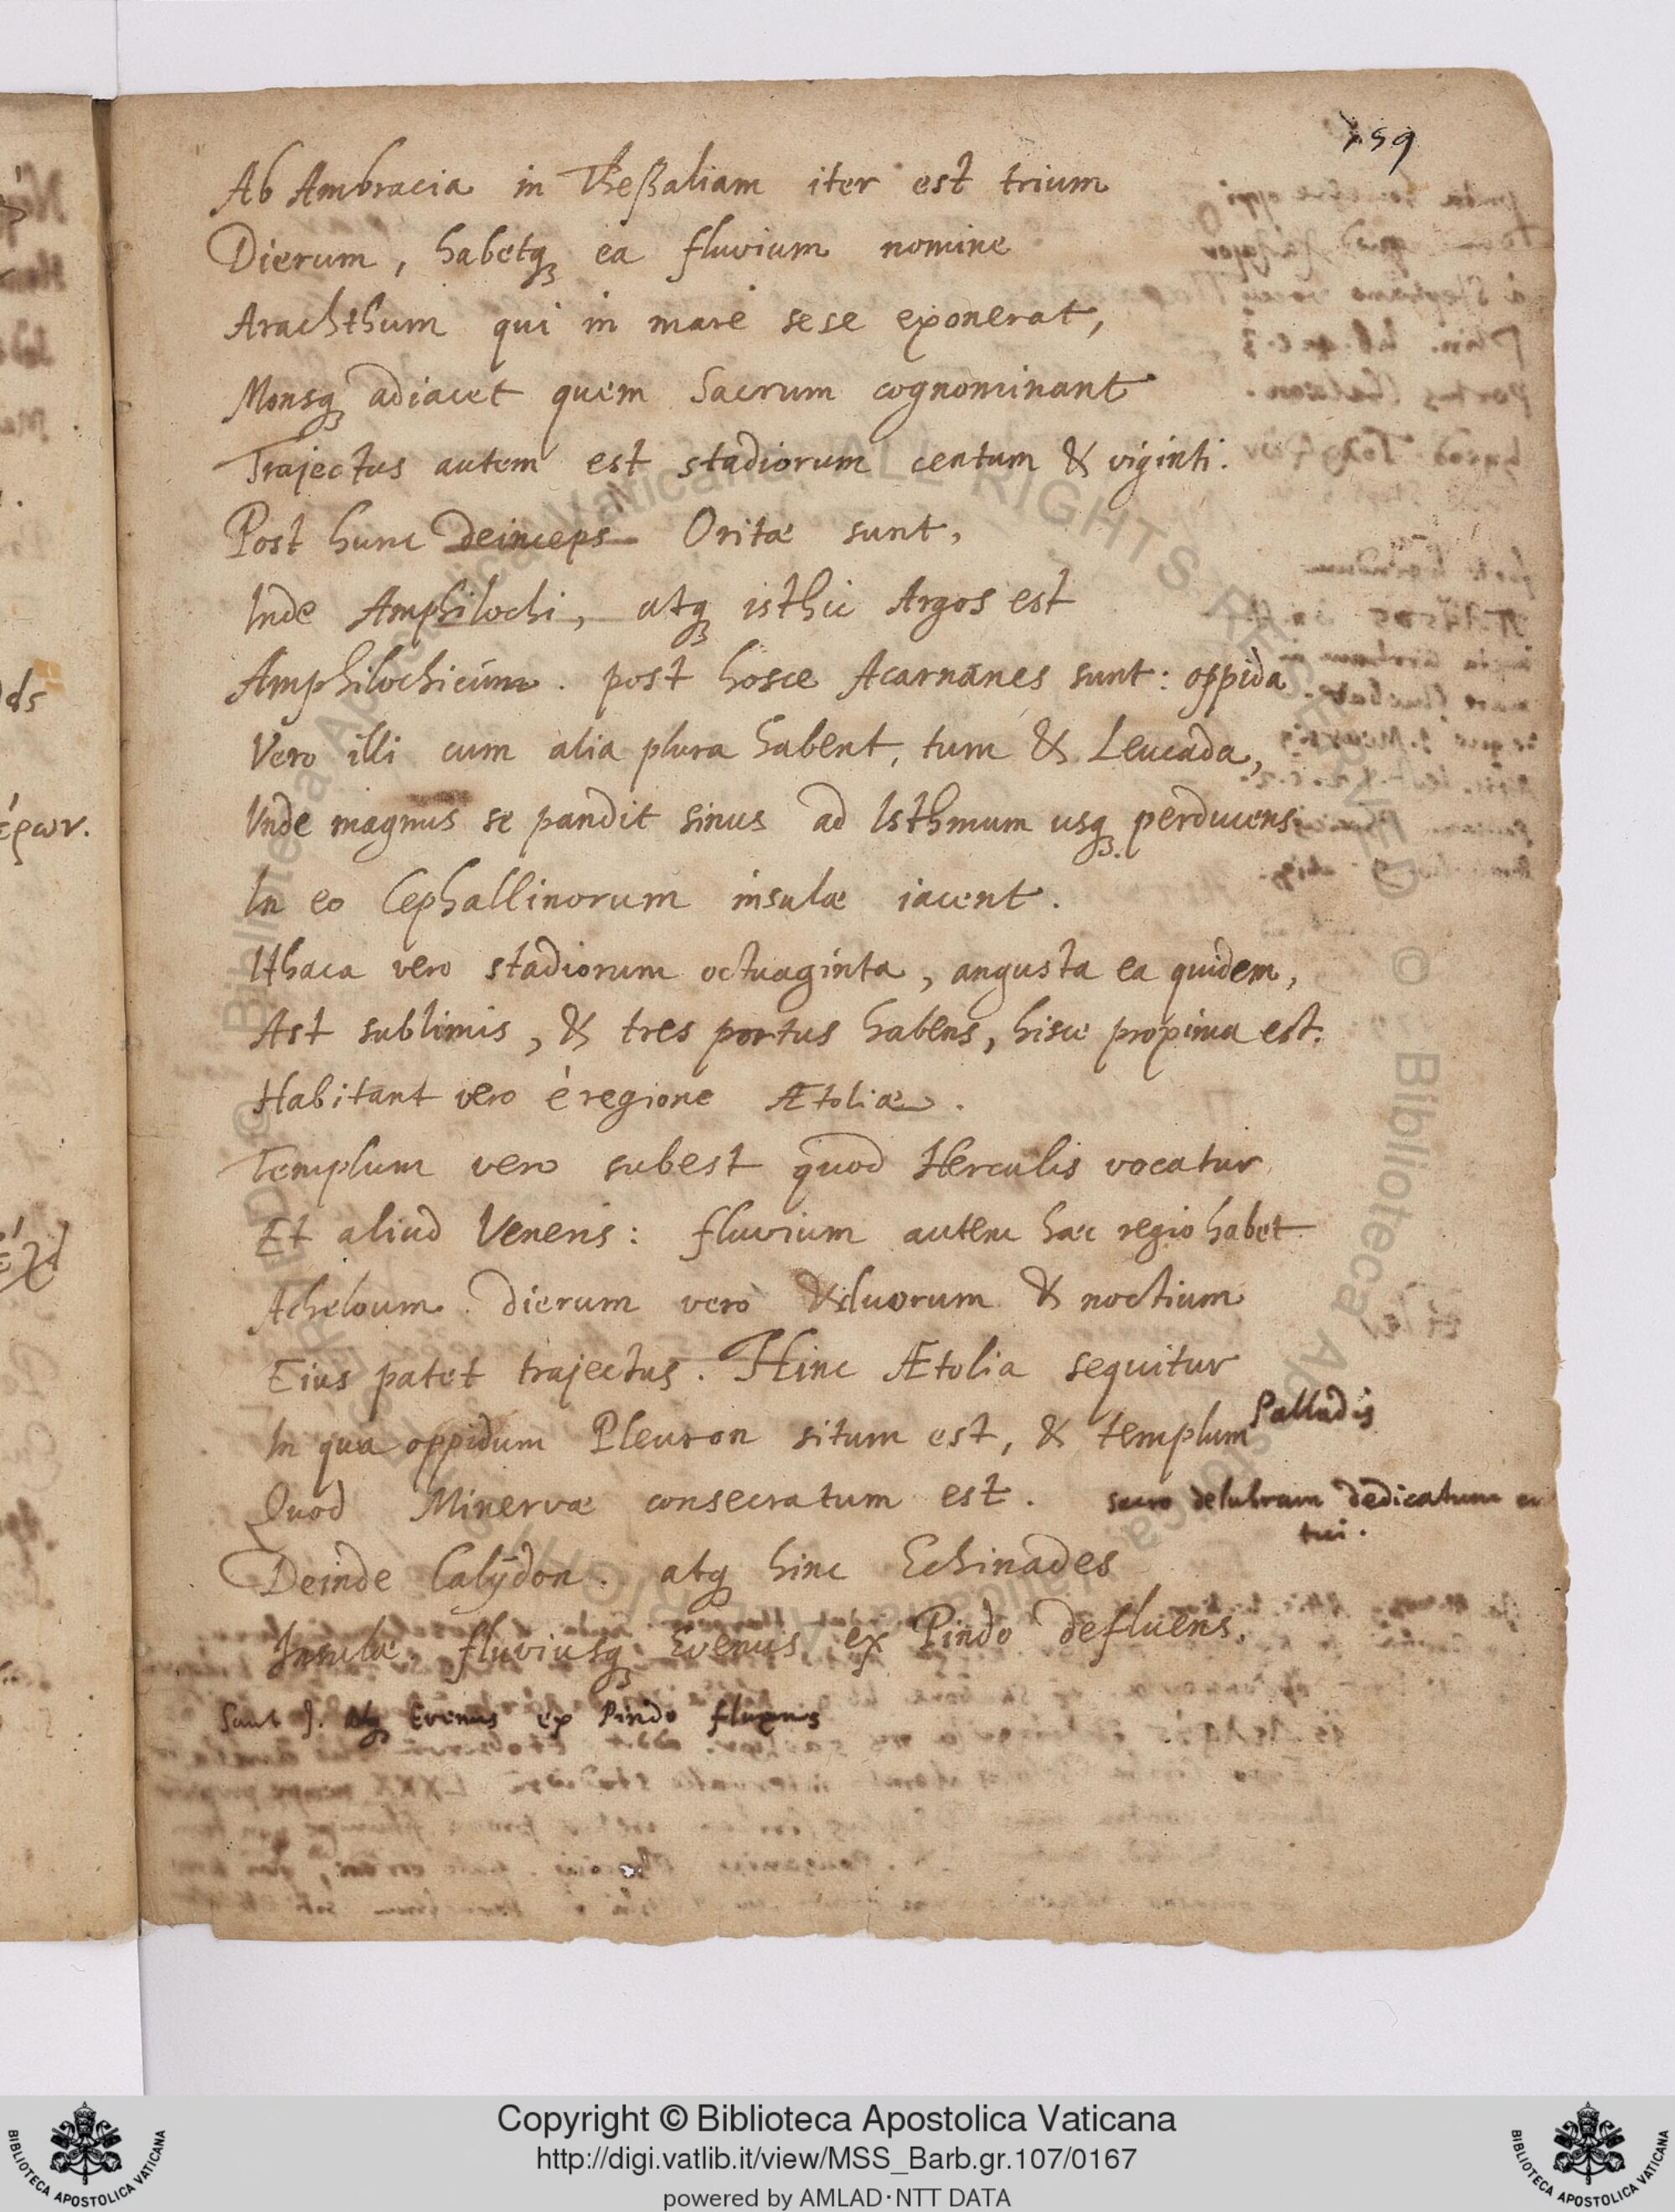 159
Ab Ambracia in Theßaliam iter est trium
Dierum, habetq; ea fluvium nomine
Arachthum qui in mare sese exonerat,
Monsq; adiacet quem Sacrum cognominant
Trajectus autem est stadiorum centum & viginti.
Post hunc deinceps Oritæ sunt,
Inde Amphilochi, atq; isthic Argos est
Amphilochicum. post hosce Acarnanes sunt: oppida
Vero illi cum alia plura habent, tum & Leucada,
Unde magnus se pandit sinus ad Isthmum usq; perducens.
In eo Cephallinorum insulæ iacent.
Ithaca vero stadiorum octuaginta, angusta ea quidem,
Ast sublimis, & tres portus habens, hisce proxima est.
Habitant vero è regione Ætoliæ.
Templum vero subest quod Herculis vocatur
Et aliud Veneris: fluvium autem hæc regio habet
Acheloum. Dierum vero & duorum & noctium
Eius patet trajectus. Hinc Ætolia sequitur
In qua oppidum Pleuron situm est, & templum Palladis
Quod Minervæ consecratum est. sacro delubrum dedicatum
tui.
Deinde Calydon. atq; hinc Echinades
Insulæ. fluviusq; Evenus ex Pindo defluens.
Sunt I. atq; Evenus ex Pindo fluens
ds
έρων.
© Biblioteca Apostolica Vaticana ALL RIGHTS RESERVED
Copyright © Biblioteca Apostolica Vaticana
http://digi.vatlib.it/view/MSS_Barb.gr.107/0167
powered by AMLAD·NTT DATA
BIBLIOTECA APOSTOLICA VATICANA
BIBLIOTECA APOSTOLICA VATICANA